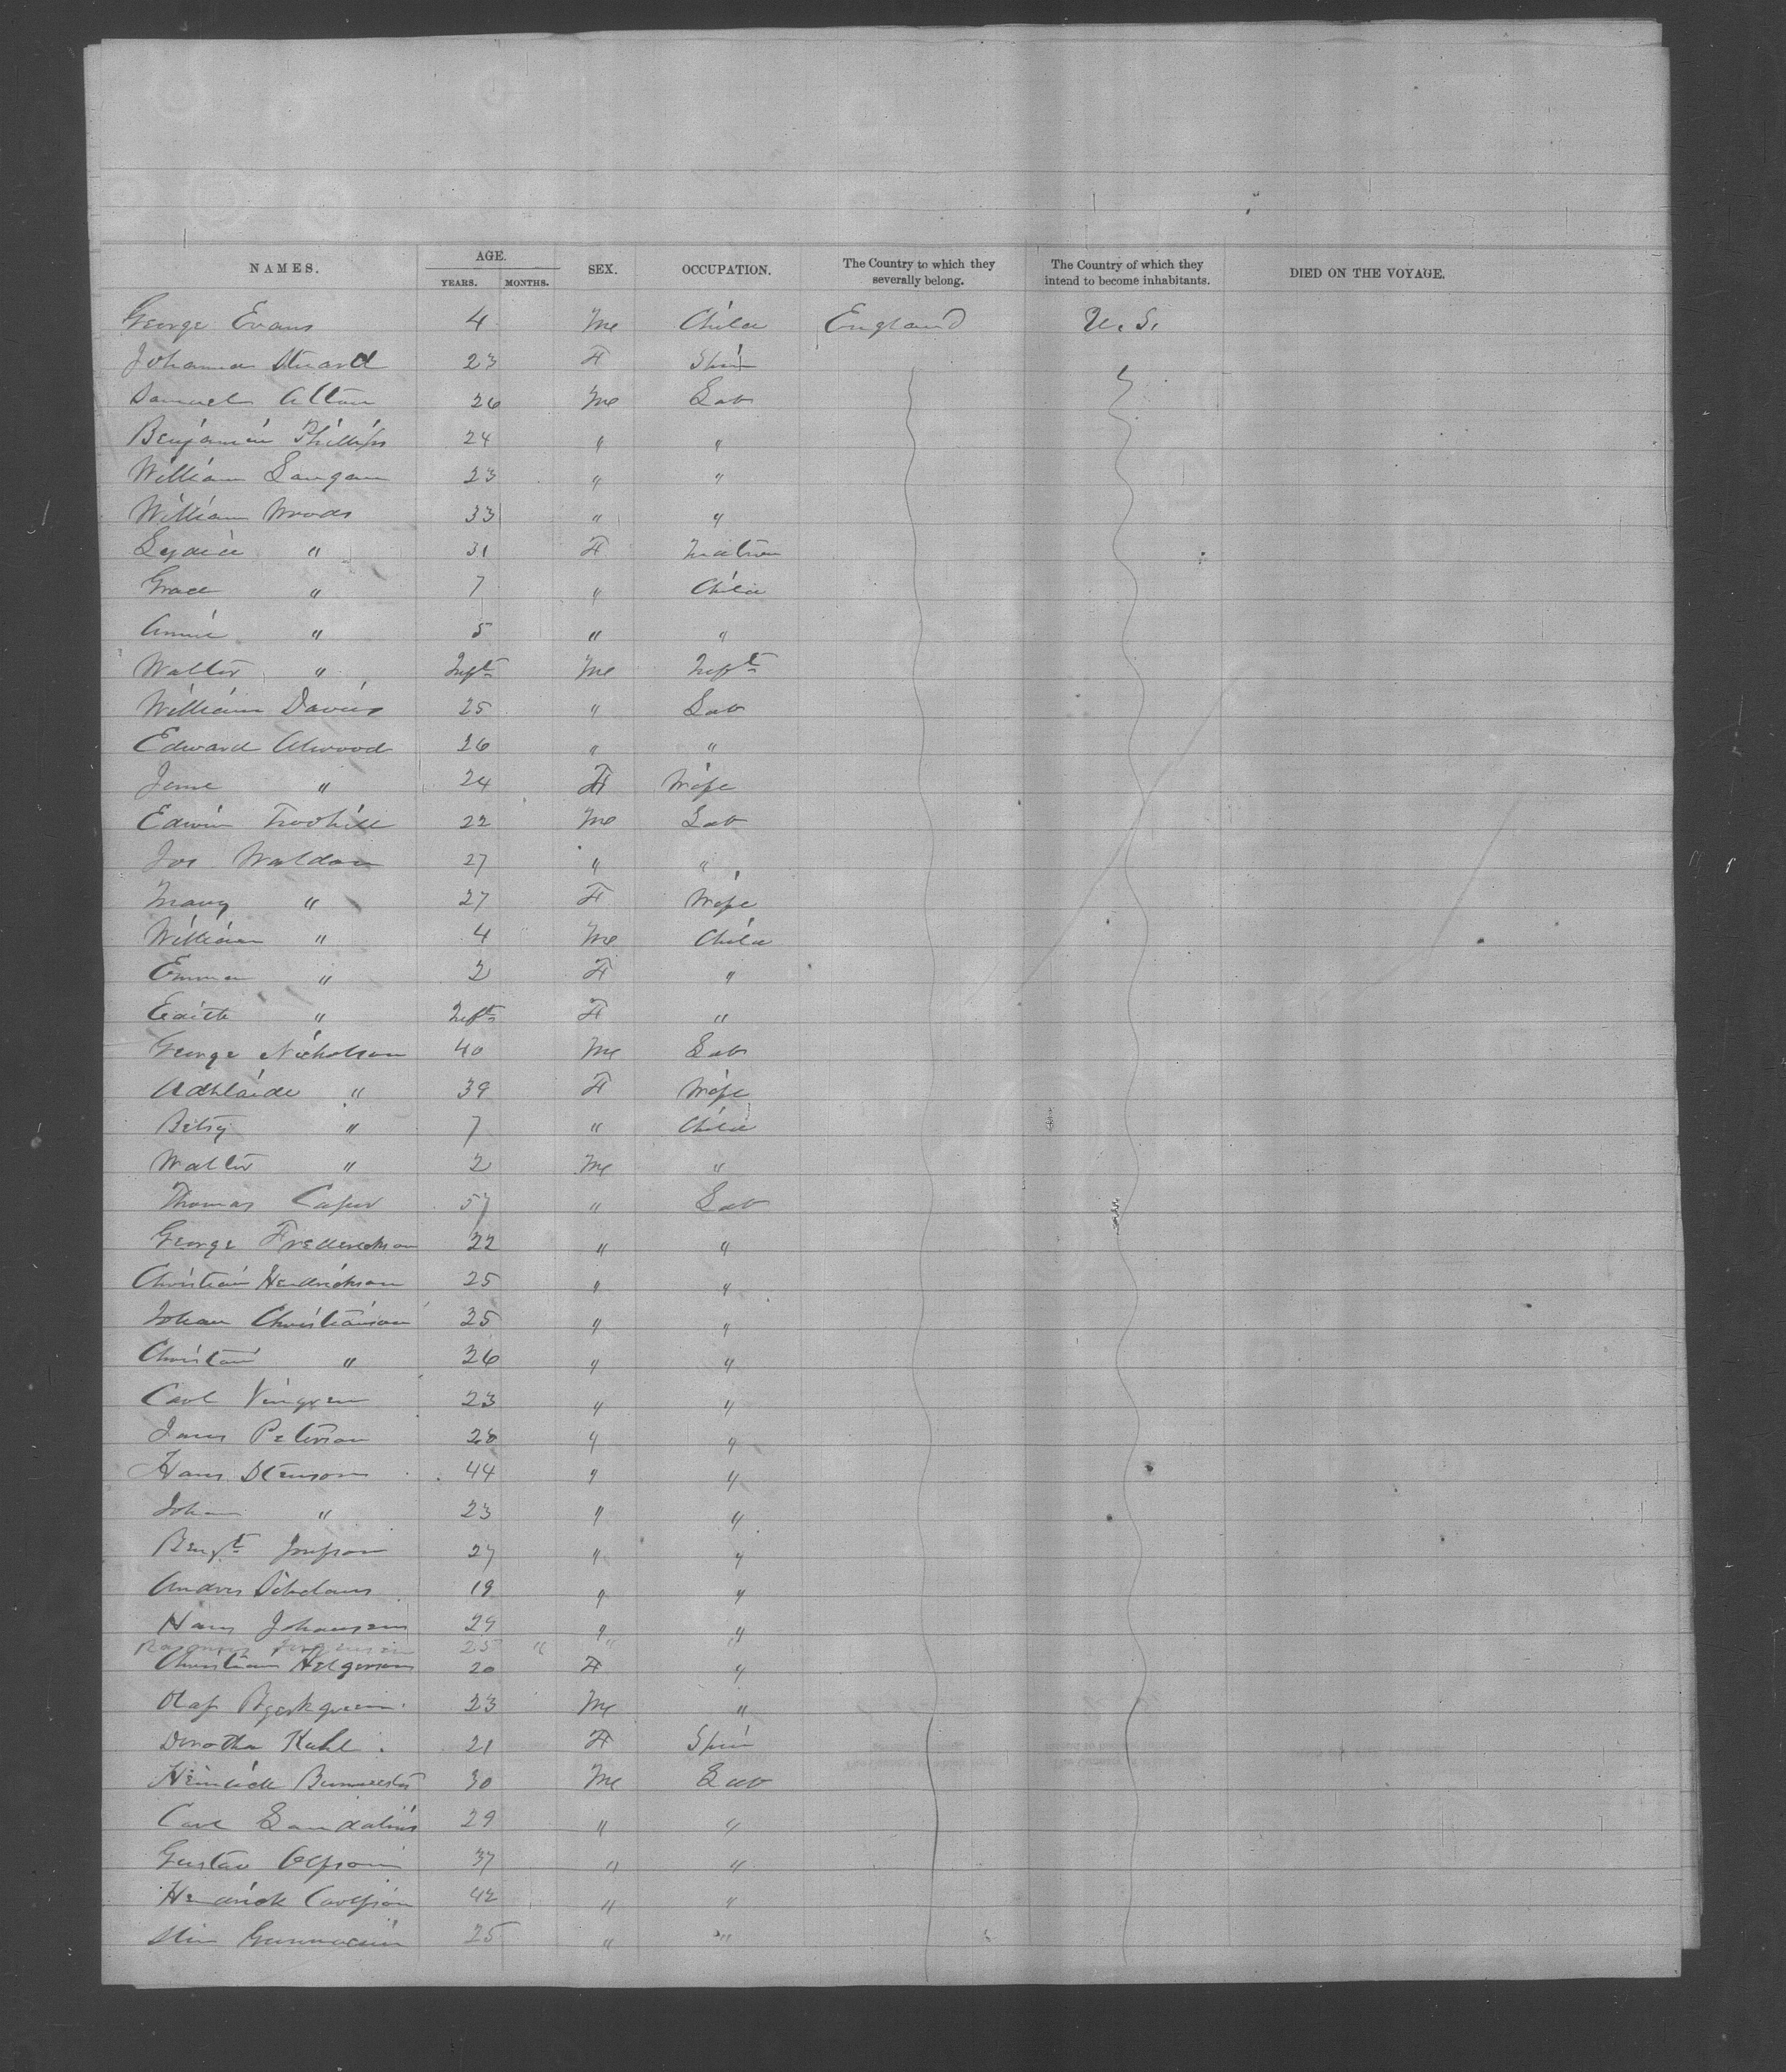 NAMES. AGE. YEARS. MONTHS. SEX. OCCUPATION. The Country to which they severally belong. The Country of which they intend to become inhabitants. DIED ON THE VOYAGE.
George Evans 4 M Child England U.S.
Johanna 23 F Spin
Samuel 26 M Lab
Benjamin Phillips 24 " "
William Langan 23 " "
William Woods 33 " "
Lydia " 31 F Matron
Grace " 7 " Child
Annie " 5 " "
Walter " Inft M Inft
William Davies 25 " Lab
Edward Atwood 26 " "
Jane " 24 F Wife
Edwin 22 M Lab
Jos Waldon 27 " "
Mary " 27 F Wife
William " 4 M Child
Emma " 2 F "
Edith " Inft F "
George Nicholson 40 M Lab
Adelaide " 39 F Wife
Betsy " 7 " Child
Walter " 2 M "
Thomas 57 " Lab
George Frederickson 22 " "
Christian Hendrickson 25 " "
Johan Christianson 25 " "
Christian " 26 " "
Carl 23 " "
James Peterson 28 " "
Hans Stenson 44 " "
Johan " 23 " "
Bengt 27 " "
Andres 19 " "
Hans Johansen 29 " "
Rasmus Jorgensen 25 " " "
Christian Helgerson 20 F "
Olaf 23 M "
Dorothea Kuhl 21 F Spin
Heinrich 30 M Lab
Carl 29 " "
Gustav 37 " "
Hendrick Carlsson 42 " "
25 " "